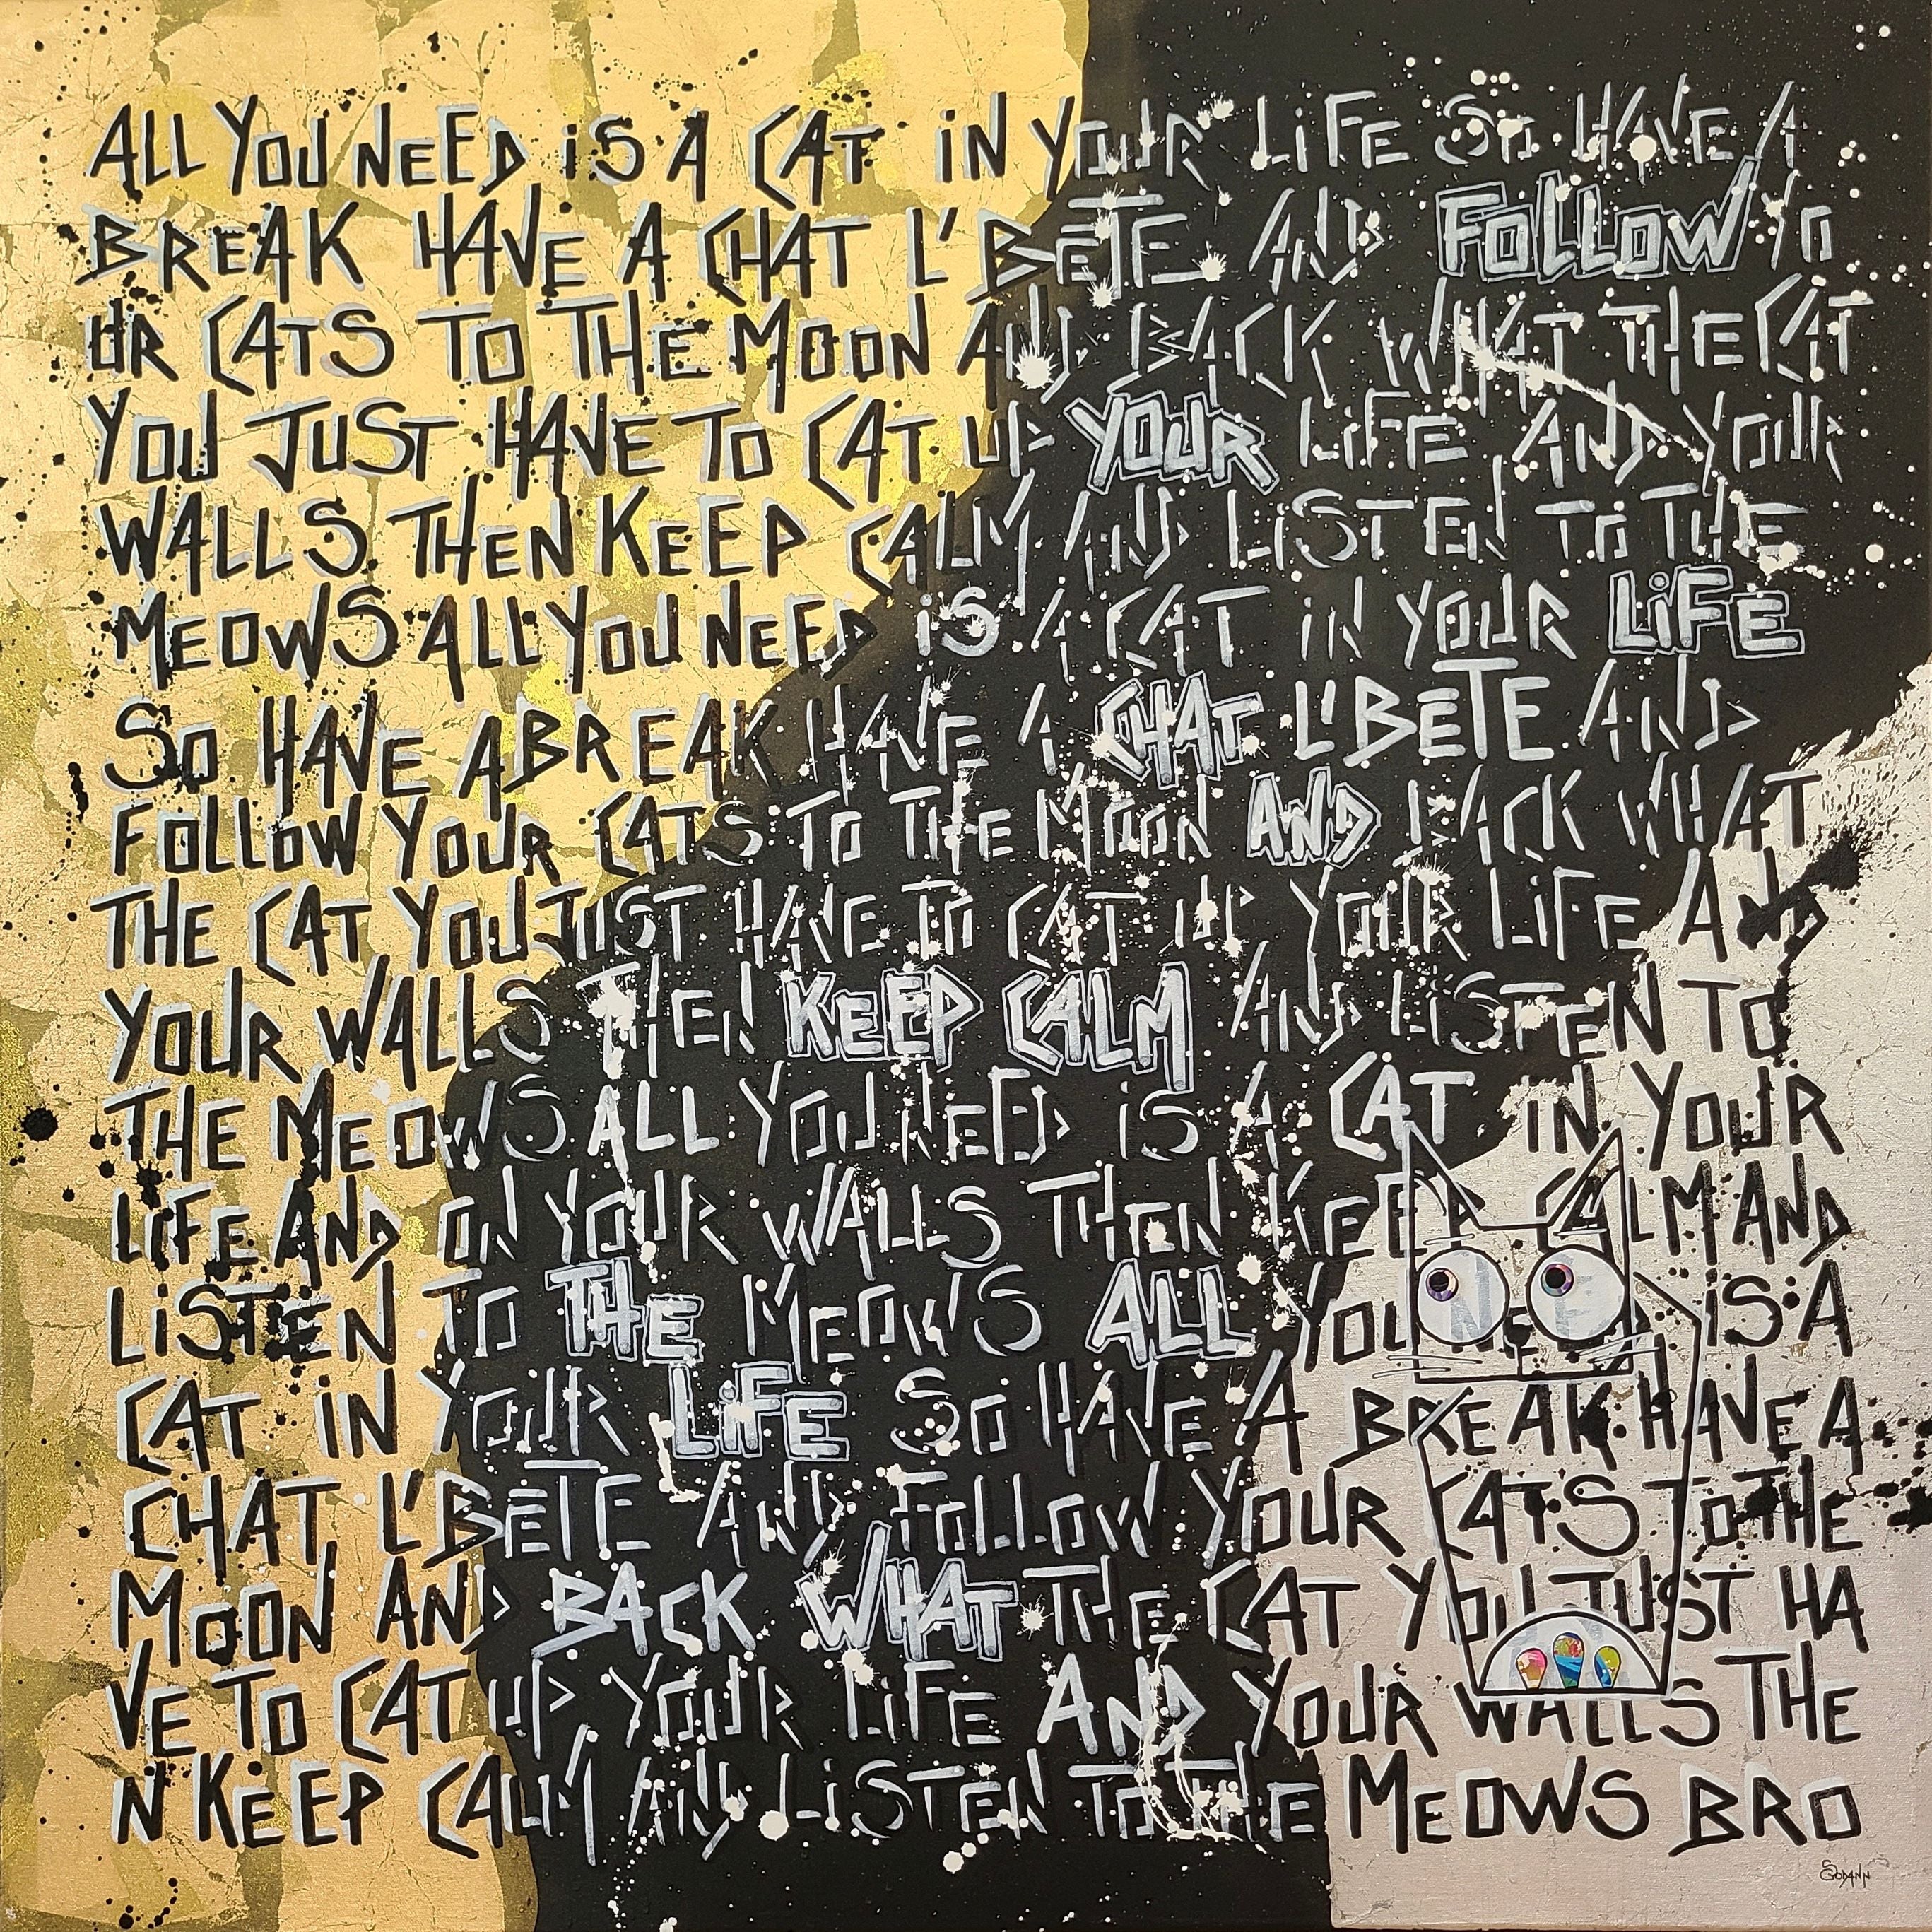 ALL YOU NEED iS A CAT iN YOUR LiFE SO HAVE A
BREAK HAVE A CHAT L'BETE AND FOLLOW YO
UR CATS TO THE MOON AND BACK WHAT THE CAT
YOU JUST HAVE TO CAT UP YOUR LiFE AND YOUR
WALLS THEN KEEP CALM AND LiSTEN TO THE
MEOWS ALL YOU NEED iS A CAT iN YOUR LiFE
SO HAVE A BREAK HAVE A CHAT L'BETE AND
FOLLOW YOUR CATS TO THE MOON AND BACK WHAT
THE CAT YOU JUST HAVE TO CAT UP YOUR LiFE AND
YOUR WALLS THEN KEEP CALM AND LiSTEN TO
THE MEOWS ALL YOU NEED iS A CAT iN YOUR
LiFE AND ON YOUR WALLS THEN KEEP CALM AND
LiSTEN TO THE MEOWS ALL YOU NEED iS A
CAT iN YOUR LiFE SO HAVE A BREAK HAVE A
CHAT L'BETE AND FOLLOW YOUR CATS TO THE
MOON AND BACK WHAT THE CAT YOU JUST HA
VE TO CAT UP YOUR LiFE AND YOUR WALLS THE
N KEEP CALM AND LiSTEN TO THE MEOWS BRO
GODANN